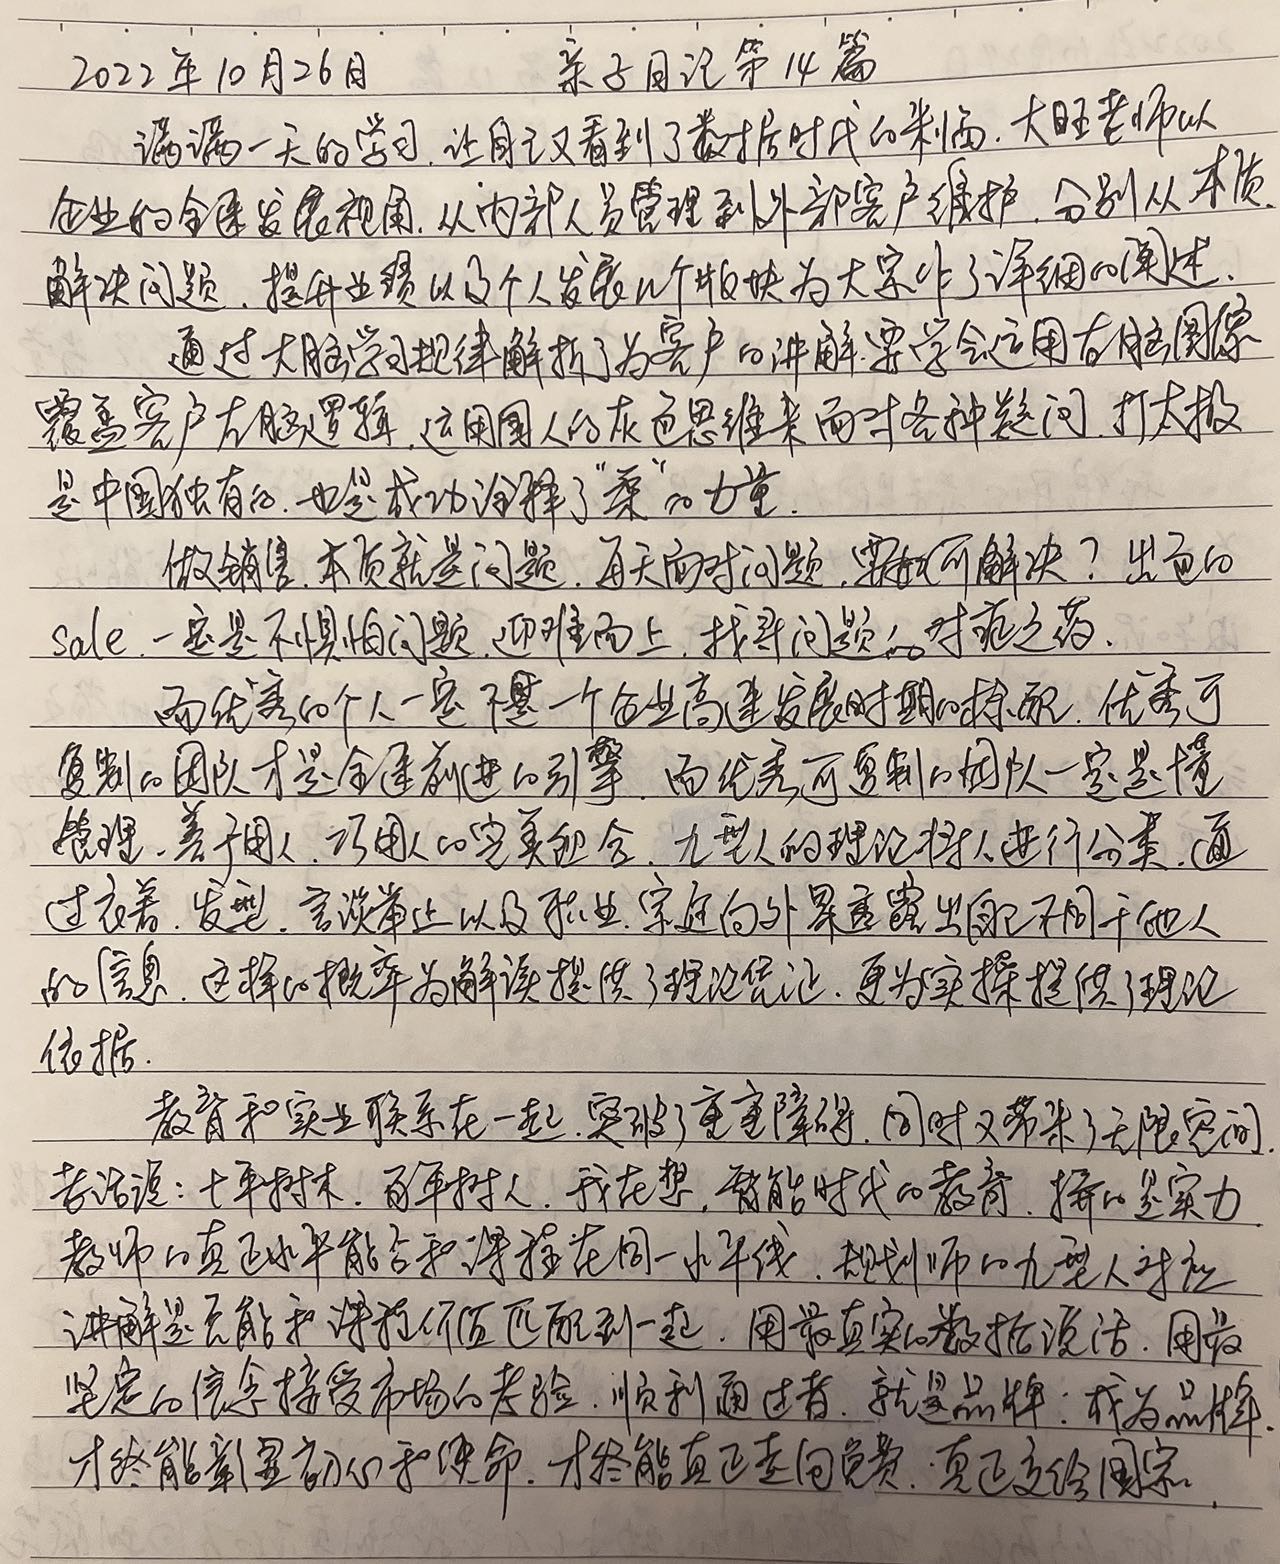 2022年10月26日 亲子日记第14篇
满满一天的学习,让自己又看到了数据时代的利润.大旺老师以
企业的全速发展视角.从内部人员管理到外部客户维护.分别从本质.
解决问题.提升业绩以及个人发展几个版块为大家作了详细的阐述.
通过大脑学习规律解析了为客户的讲解.要学会运用右脑图像
覆盖客户左脑逻辑.运用国人的灰色思维来面对各种疑问.打太极
是中国独有的.也是成功诠释了"柔"的力量.
做销售.本质就是问题.每天面对问题.要如何解决?出色的
sale.一定是不惧怕问题.迎难而上.找寻问题的对症之药.
而优秀的个人一定不是一个企业高速发展时期的标配.优秀可
复制的团队才是全速前进的引擎.而优秀可复制的团队一定是懂
管理.善于用人.巧用人的完美组合.九型人的理论将人进行分类.通
过衣着.发型.言谈举止以及职业.家庭向外界透露出自己不同于他人
的信息.这样的概率为解读提供了理论凭证.更为实操提供了理论
依据.
教育和实业联系在一起.突破了重重障碍.同时又带来了无限空间.
老话说:十年树木.百年树人.我在想.智能时代的教育.拼的是实力.
教师的真正水平能否和课程在同一水平线.规划师的九型人对应
讲解是否能和课程价值匹配到一起.用最真实的数据说话.用最
坚定的信念接受市场的考验.顺利通过者.就是品牌;成为品牌.
才终能彰显初心和使命.才终能真正走向免费.真正交给国家.